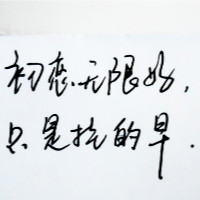 初恋无限好,
只是挂的早.